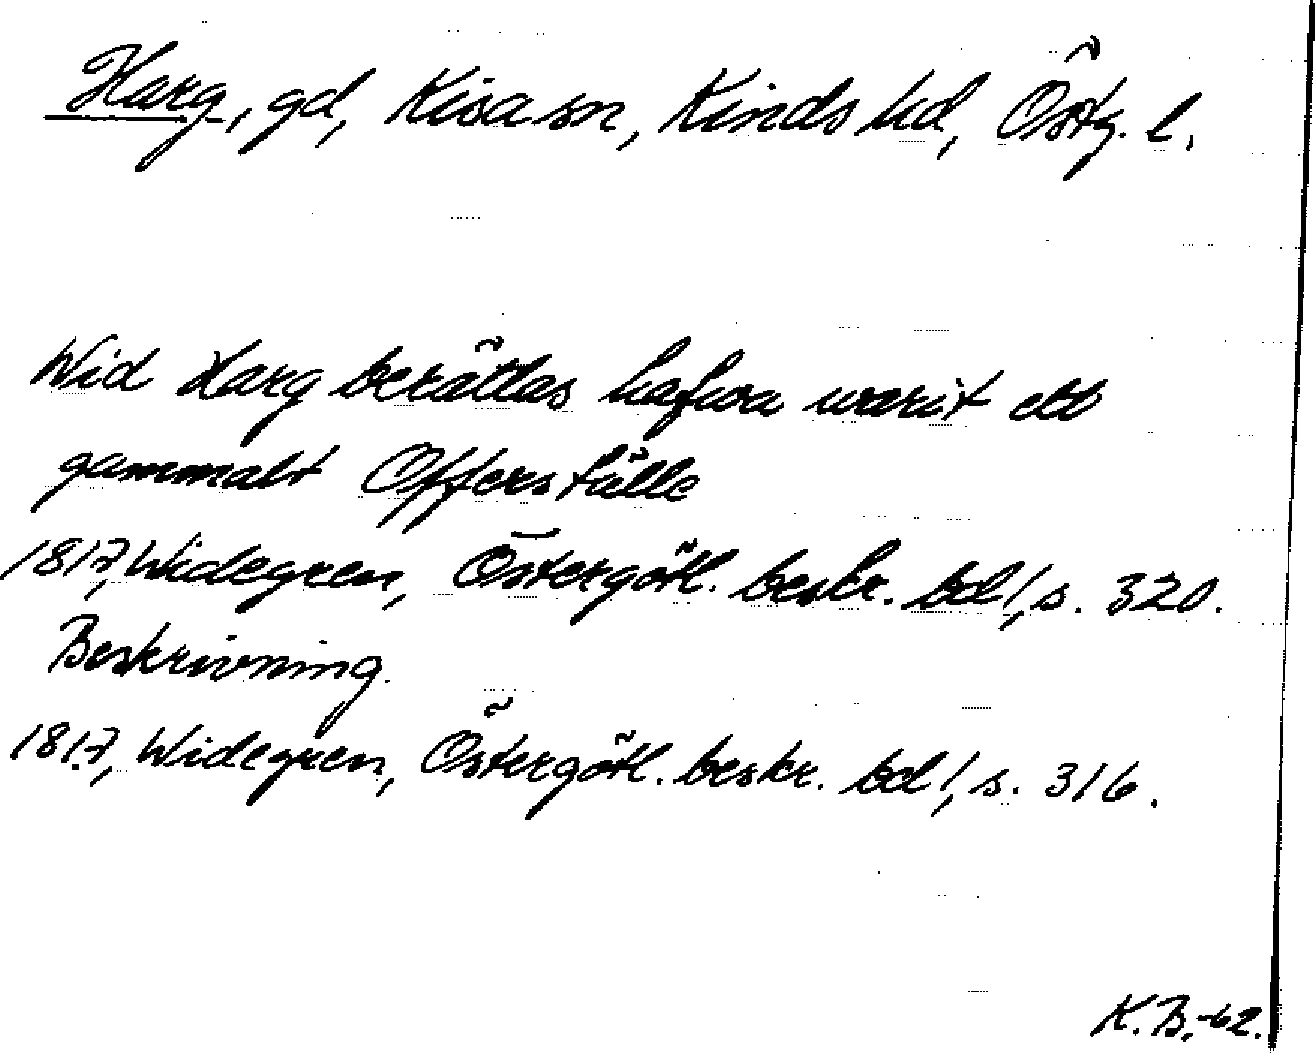 Harg, gd, Kisa sn, Kinds hd, Östg. l.
Wid Harg berättas hafwa warit ett
gammalt Offerställe
1817, Widegren, Östergötl. beskr. bd 1, s. 320.
Beskrivning.
1817, Widegren, Östergötl. beskr. bd 1, s. 316.
K. B. -62.